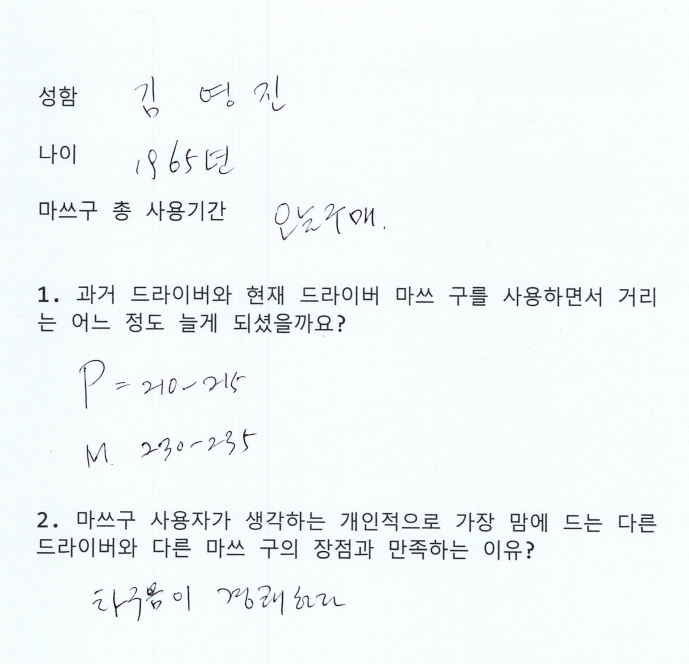 성함 김 영 진
나이 1965년
마쓰구 총 사용기간 오늘구매.
1. 과거 드라이버와 현재 드라이버 마쓰 구를 사용하면서 거리
는 어느 정도 늘게 되셨을까요?
P = 210-215
M. 230-235
2. 마쓰구 사용자가 생각하는 개인적으로 가장 맘에 드는 다른
드라이버와 다른 마쓰 구의 장점과 만족하는 이유?
타구음이 경쾌하다